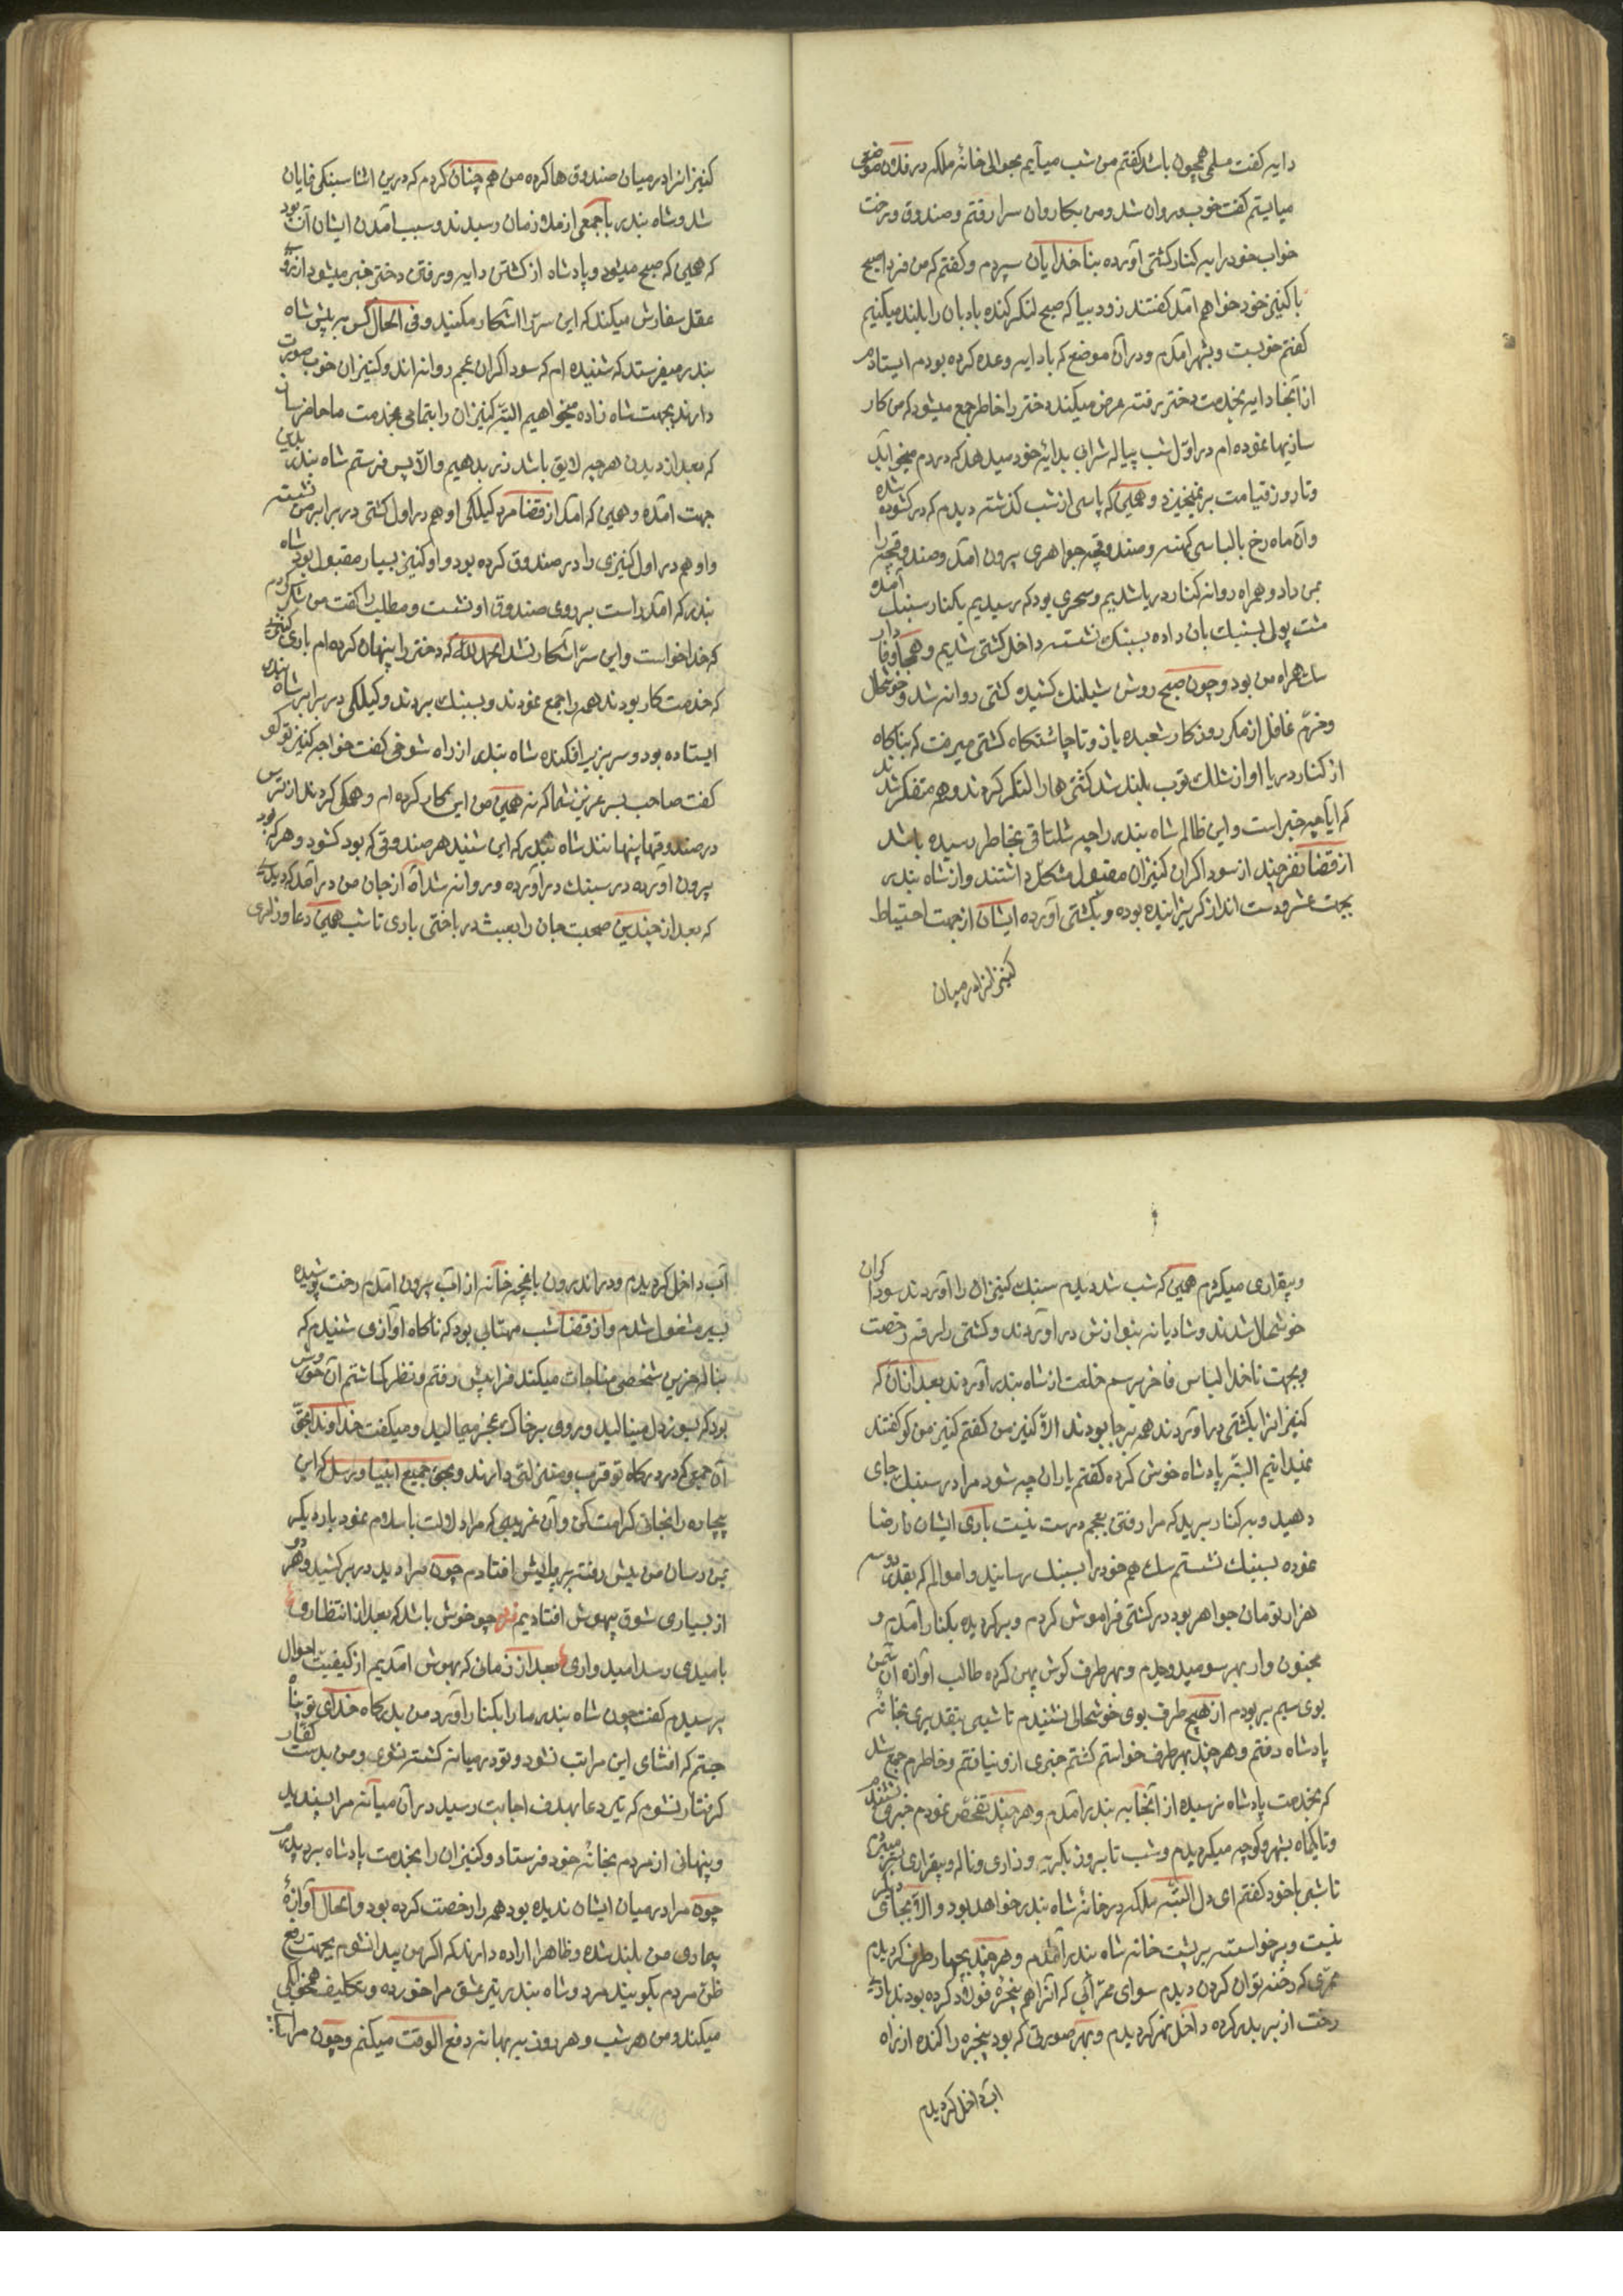 دایه گفت مسلمی همچون باشد گفتم من شب میآیم بحوالی خانهٔ ملکه در فلان موضع
میایستم گفت خوب و روان شد و من بکاروان سرا رفتم و صندوق و رخت
خواب خود را به کنار کشتی آورده بناخدایان سپردم و گفتم که من فردا صبح
با کنیز خود خواهم آمد گفتند زود بیا که صبح لنکر کنده بادبان را بلند میکنیم
گفتم خوبست و بشهر آمدم و در آن موضع که با دایه وعده کرده بودم ایستادم
از آنجا دایه بخدمت دختر رفته عرض میکند دختر را خاطر جمع میشود که من کار
سازیها نموده ام در اوّل شب پیاله شرابی بدایهٔ خود میدهد که در دم میخوابد
و تا روز قیامت برنمیخیزد و همین که پاسی از شب گذشته دیدم که در گشوده شده
و آن ماه رخ با لباسی کهنه و صندوقچه جواهری بیرون آمد و صندوقچه را
بمن داد و همراه روانه کنار دریا شدیم و سحری بود که رسیدیم بکنار سنبک آمده
مشت پول بسنبک بان داده بسنبک نشسته داخل کشتی شدیم و همچنا وفادار
سک همراه من بود و چون صبح روشن شد لنک کشیده کشتی روانه شد و خوشحال
و خرّم غافل از مکر روزکار شعبده باز و تا چاشتکاه کشتی میرفت که بناکاه
از کنار دریا اواز شلک توپ بلند شد کشتی ها را لنکر کردند و همه متفکر شدند
که آیا چه خبر است و این ظالم شاه بندر را چه شلتاقی بخاطر رسیده باشد
از قضا نفر چند از سوداکران کنیزان مقبول مشکل داشتند و از شاه بندر
بجهت عشر و دست انداز گریزانیده بوده و بکشتی آورده ایشان از جهت احتیاط
کنیزانرا در میان
کنیزانرا در میان صندوق ها کرده من هم چنان کردم که درین اثنا سبنکی نمایان
شد و شاه بندر با جمعی از ملازمان رسیدند و سبب آمدن ایشان آن بود
که همین که صبح میشود و پادشاه از کشتن دایه و رفتن دختر خبر میشود از روی
عقل سفارش میکند که این سرّ را آشکار مکنید و فی الحال کس بر پیش شاه
بندر میفرستد که شنیده ام که سوداکران عجم روانه اند و کنیزان خوب صورت
دارند بجهت شاه زاده میخواهیم البتّه کنیزان را بتمامی بخدمت ما حاضر ساز
که بعد از دیدن هر چه لایق باشد زر بدهیم و الّا پس فرستم شاه بندر بدین
جهت آمده و همین که آمد از قضا مرد کیلکی او هم در اول کشتی در برابر من نشسته
و او هم در اول کنیزی را در صندوق کرده بود و او کنیز بسیار مقبول بود شاه
بندر که آمد راست بر روی صندوق او نشست و مطلب را گفت من شکر کردم
که خدا خواست و این سرّ آشکار نشد الحمد لله که دختر را پنهان کرده ام باری کنیزانی
که خدمت کار بودند همه را جمع نمودند و بسنبک بردند و کیلکی در برابر شاه بندر
ایستاده بود و سر بزیر افکنده شاه بندر از راه شوخی گفت خواجه کنیز تو کو
گفت صاحب بسر عزیز شما که نه همین من این کار کرده ام و همکی کردند از ترس
در صندوقها پنهانند شاه بندر که این شنید هر صندوقی که بود گشود و هر که بود
بیرون آورده در سنبک در آورده و روانه شد آه از جان من در آمد که دیدی
که بعد از چندین صحبت جان را بعبث در باختی باری تا شب همین دعا و زاری
و بیقراری میکردم همین که شب شد دیدم سنبک کنیزان را آوردند سوداکران
خوشحال شدند و شادیانه بنوازش در آوردند و کشتی را بر قه رخصت
و بجهت ناخدا لباس فاخر برسم خلعت از شاه بندر آوردند بعد از آن که
کنیزانرا بکشتی در آوردند همه بر جا بودند الّا کنیز من گفتم کنیز من کو گفتند
نمیدانیم البتّه پادشاه خوش کرده گفتم یاران چه شود مرا در سنبک جای
دهید و به کنار برید که مرا رفتن بعجم درست نیست باری ایشان را رضا
نموده بسنبک نشستم سک هم خود را بسنبک رسانید و اموالم که بقدر دو سه
هزار تومان جواهر بود در کشتی فراموش کردم و بر کردیده بکنار آمدم و
مجنون وار بهر سو میدویدم و بهر طرف کوش پهن کرده طالب آوازه آن سمن
بوی سیم بر بودم از هیچ طرف بوی خوشحالی نشنیدم تا شبی بتقدیری بخانه
پادشاه رفتم و هر چند بهر طرف خواستم گشتم خبری ازو نیافتم و خاطرم جمع شد
که بخدمت پادشاه نرسیده از آنجا به بندر آمدم و هر چند تفحّص نمودم خبری نشنیدم
و تا یکماه بشهر و کوچه میکردیدم و شب تا بروز بکریه و زاری و ناله و بیقراری بسر میبردم
تا شبی با خود گفتم ای دل البتّه ملکه در خانهٔ شاه بندر خواهد بود و الّا بجای دیکر
نیست و برخواسته بر پشت خانه شاه بندر آمدم و هر چند بچهار طرف کردیدم
ممرّی که رخنه توان کردن ندیدم سوای ممرّ آبی که انرا هم پنجره فولاد کرده بودند
رخت از بر بدر کرده داخل نهر کردیدم و بهر صورتی که بود پنجره را کنده از راه
آب داخل کردیدم
آب داخل کردیدم و در اندرون باغچه خانه از آب بیرون آمدم رخت پوشیده
بسیر مشغول شدم و از قضا شب مهتابی بود که ناکاه آوازی شنیدم که
بناله حزین شخصی مناجات میکند فرا پیش رفتم و نظر کماشتم آن حوروش
بود که بسوز دل مینالید و روی بر خاک عجز میمالید و میکفت خداوندا بحقّ
آن جمعی که در درکاه تو قرب و منزلتی دارند و بحق جمیع انبیا و رسل که این
بیچاره را نجاتی کرامت کن و آن غریبی که مرا دلالت باسلام نمود بار دیکر
بمن رسان من پیش رفته بر پایش افتادم چون مرا دید در بر کشید و هر دو
از بسیاری شوق بیهوش افتادیم فرد چو خوش باشد که بعد از انتظاری
بامیدی رسد امیدواری بعد از زمانی که بهوش آمدیم از کیفیت احوال
پرسیدم گفت چون شاه بندر ما را بکنار آورد من بدرکاه خدای تو پناه
جستم که افشای این مراتب نشود و تو در میانه کشته نشوی و من بدست کفار
کرفتار نشوم که تیر دعا بهدف اجابت رسید در آن میانه مرا پسندید
و پنهانی از مردم بخانهٔ خود فرستاد و کنیزان را بخدمت پادشاه برد پدرم
چون مرا در میان ایشان ندیده بود همه را رخصت کرده بود و الحال آوازهٔ
بیماری من بلند شده و ظاهرا اراده دارند که اکر من پیدا نشوم بجهت رفع
ظن مردم بکویند مرد و شاه بندر تیر عشق مرا خورده و تکلیف همخوابکی
میکند و من هر شب و هر روز به بهانه دفع الوقت میکنم و چون مرا